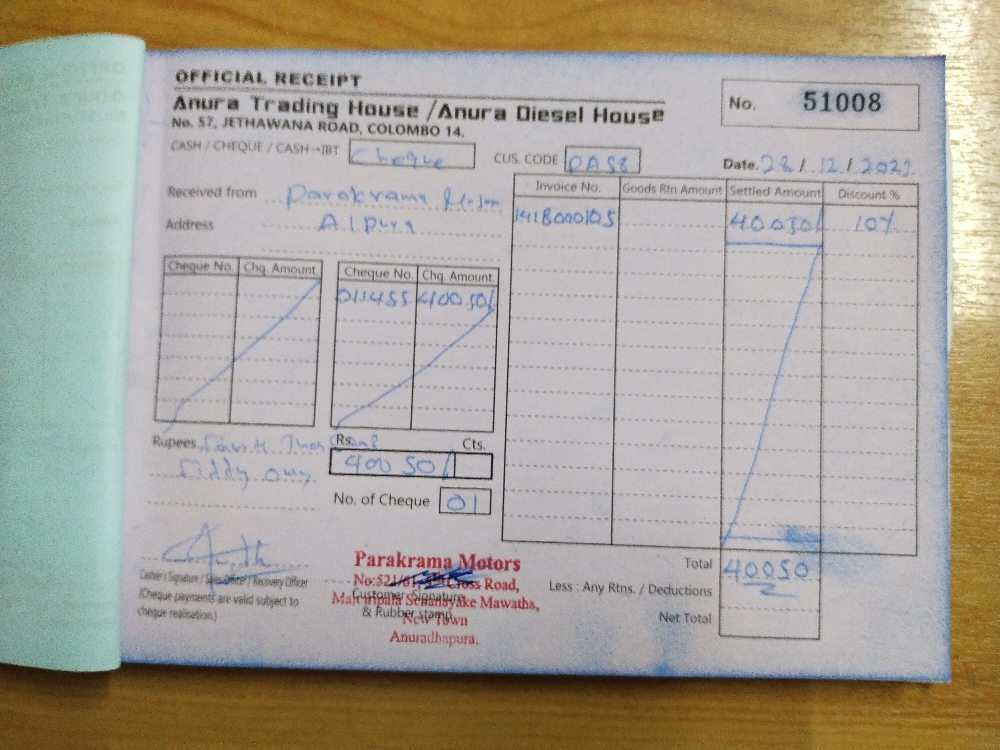 OFFICIAL RECEIPT
Anura Trading House /Anura Diesel House
No. 57, JETHAWANA ROAD, COLOMBO 14.
No. 51008
CASH / CHEQUE / CASH→IBT Cheque
CUS. CODE PA58
Date. 28 / 12 / 2023
Received from Parakrama
Address A/Pura
Invoice No. Goods Rtn Amount Settled Amount Discount %
1418000105 40050/ 10%
Cheque No. Chq. Amount Cheque No. Chq. Amount
011455 40050/
Rupees Fourty
Fifty Only.
Rs. Cts.
40050/
No. of Cheque 01
Cashier's Signature / Sales Officer / Recovery Officer
(Cheque payments are valid subject to
cheque realisation.)
Parakrama Motors
No:521/61, Cross Road,
Customer Signature
Maithripala Senanayake Mawatha,
& Rubber stamp
New Town
Anuradhapura.
Total 40050
Less : Any Rtns. / Deductions
Net Total